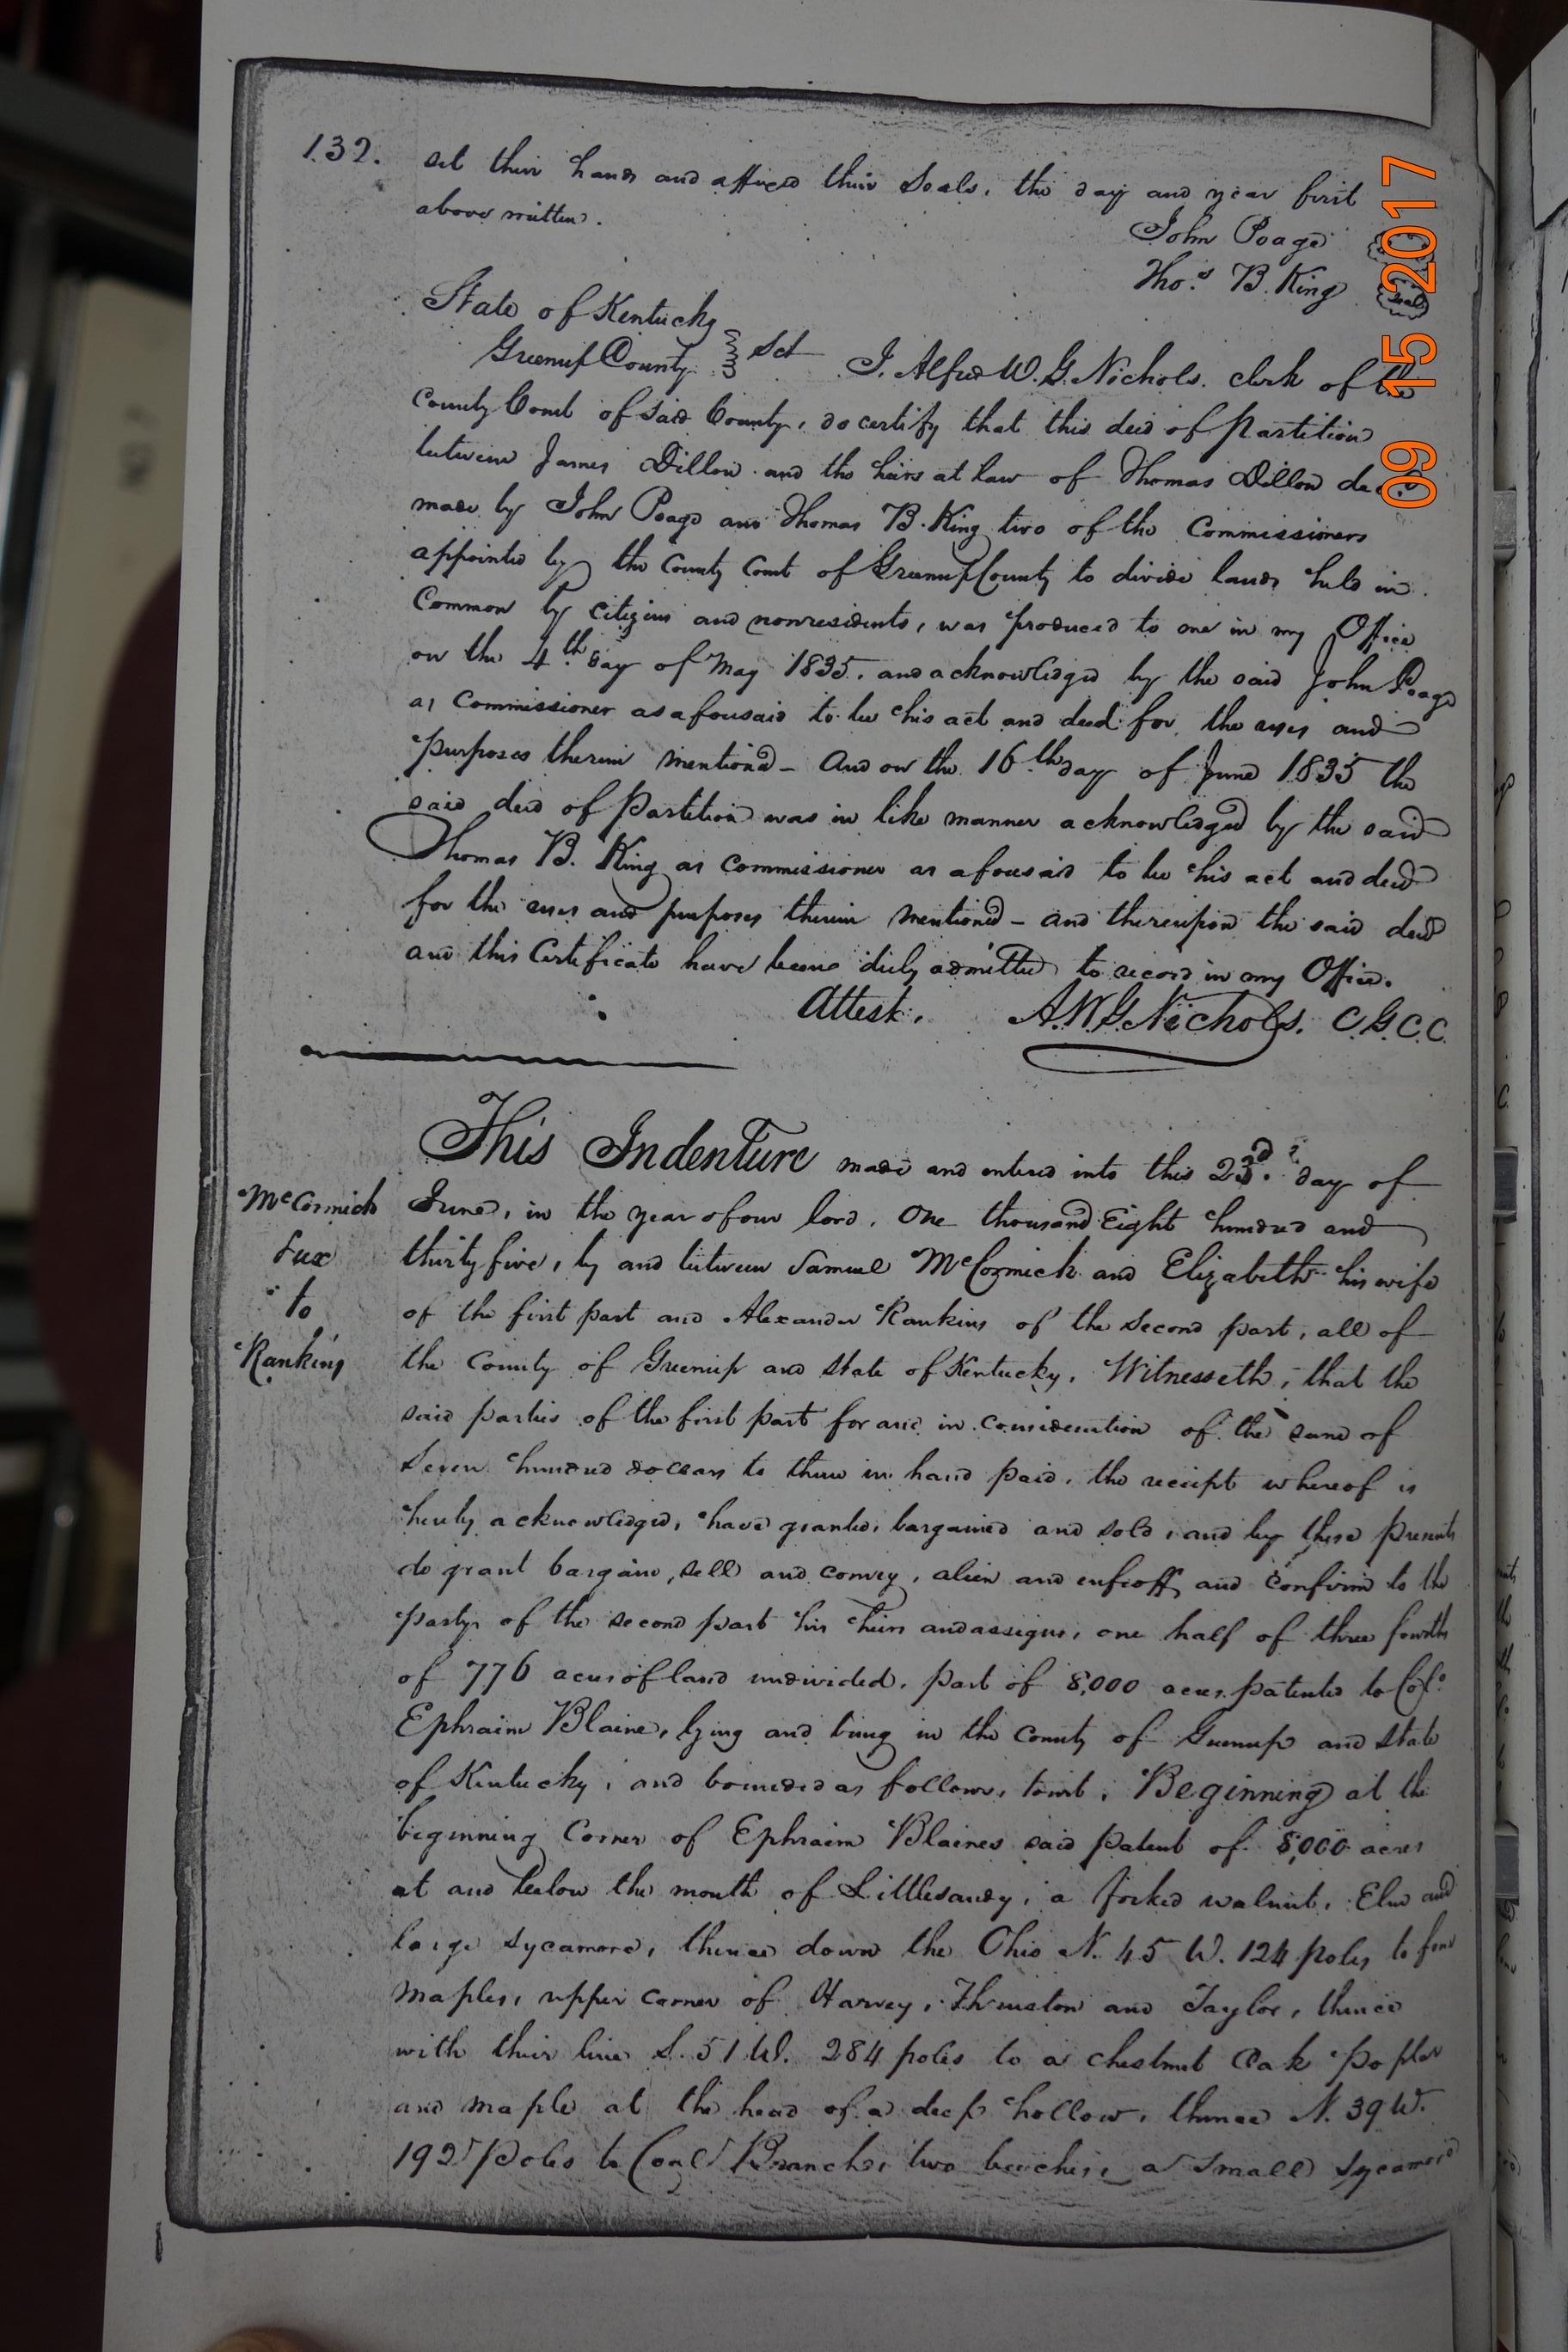 132. set their hands and affixed their Seals, the day and year first
above written.
John Poage
Thos. B. King Seal
State of Kentucky
Greenup County Sct I. Alfred W. G. Nichols. clerk of the
County Court of said County, do certify that this deed of Partition
between James Dillon and the heirs at law of Thomas Dillon decd
made by John Poage and Thomas B. King two of the Commissioners
appointed by the County Court of Greenup County to divide lands held in
Common by citizens and nonresidents, was produced to me in my Office
on the 4th day of May 1835. and acknowledged by the said John Poage
as Commissioner as aforesaid to be his act and deed for the uses and
purposes therein mentioned - And on the 16th day of June 1835 the
said deed of Partition was in like manner acknowledged by the said
Thomas B. King as commissioner as aforesaid to be his act and deed
for the uses and purposes therein mentioned - and thereupon the said deed
and this Certificate have been duly admitted to record in my Office.
Attest. A. W. G. Nichols. C. G. C. C.
This Indenture made and entered into this 23rd. day of
McCormick June, in the year of our lord, One thousand Eight hundred and
&ux thirty five, by and between Samuel McCormick and Elizabeth his wife
to of the first part and Alexander Rankins of the Second part, all of
Rankins the County of Greenup and State of Kentucky, Witnesseth, that the
said parties of the first part for and in consideration of the sum of
Seven hundred dollars to them in hand paid, the receipt whereof is
hereby acknowledged, have granted, bargained and sold, and by these presents
do grant bargain, sell and convey, alien and enfeoff, and confirm to the
party of the second part his heirs and assigns, one half of three fourths
of 776 acres of land undivided, part of 8,000 acres patented to Col.
Ephraim Blaine, lying and being in the County of Greenup and State
of Kentucky, and bounded as follows, towit, Beginning at the
beginning Corner of Ephraim Blaines said patent of 8,000 acres
at and below the mouth of Littlesandy, a forked walnut, Elm and
large Sycamore, thence down the Ohio N. 45 W. 124 poles to four
Maples, upper corner of Harvey, Thruston and Taylor, thence
with their line S. 51 W. 284 poles to a chestnut Oak Poplar
and maple at the head of a deep hollow, thence N. 39 W.
192 poles to Coal Branch, two beeches, a small Sycamore
09 15 2017